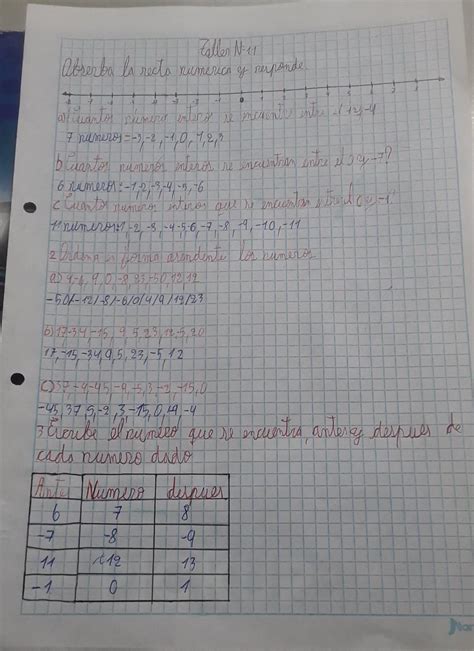 Taller N-11
Observa la recta numerica y responde.
0
a) Cuantos número enteros se encuentra entre -4
7 numeros=-3,-2,-1,0,1,2,3
b) Cuantos numeros enteros se encuentran entre el y -7?
6 numeros:-1,2,-3,-4,-5,-6
c Cuantos numeros enteros que se encuentan entre
11 numeros 1,-2,-3,-4-5,6,-7,-8,-9,-10,-11
2 Ordena en forma asendente los numeros
a) 4-6, 9, 0, -8, 23, -50, 12, 12
-50/-12/-8/-6/0/4/9/12/23
b) 17-34,-15, 9, 5, 23, 12-5, 20
17,-15,-34,9,5,23,-5,12
c) 37,-4-45,-9,-5,3,-2,-15,0
-45,37,5,-2,3,-15,0,-4
3 Escribe el numero que se encuentra, antes y despues de
cada numero dado
Antes Numero despues
6 7 8
-7 -8 -9
11 12 13
-1 0 1
Nor